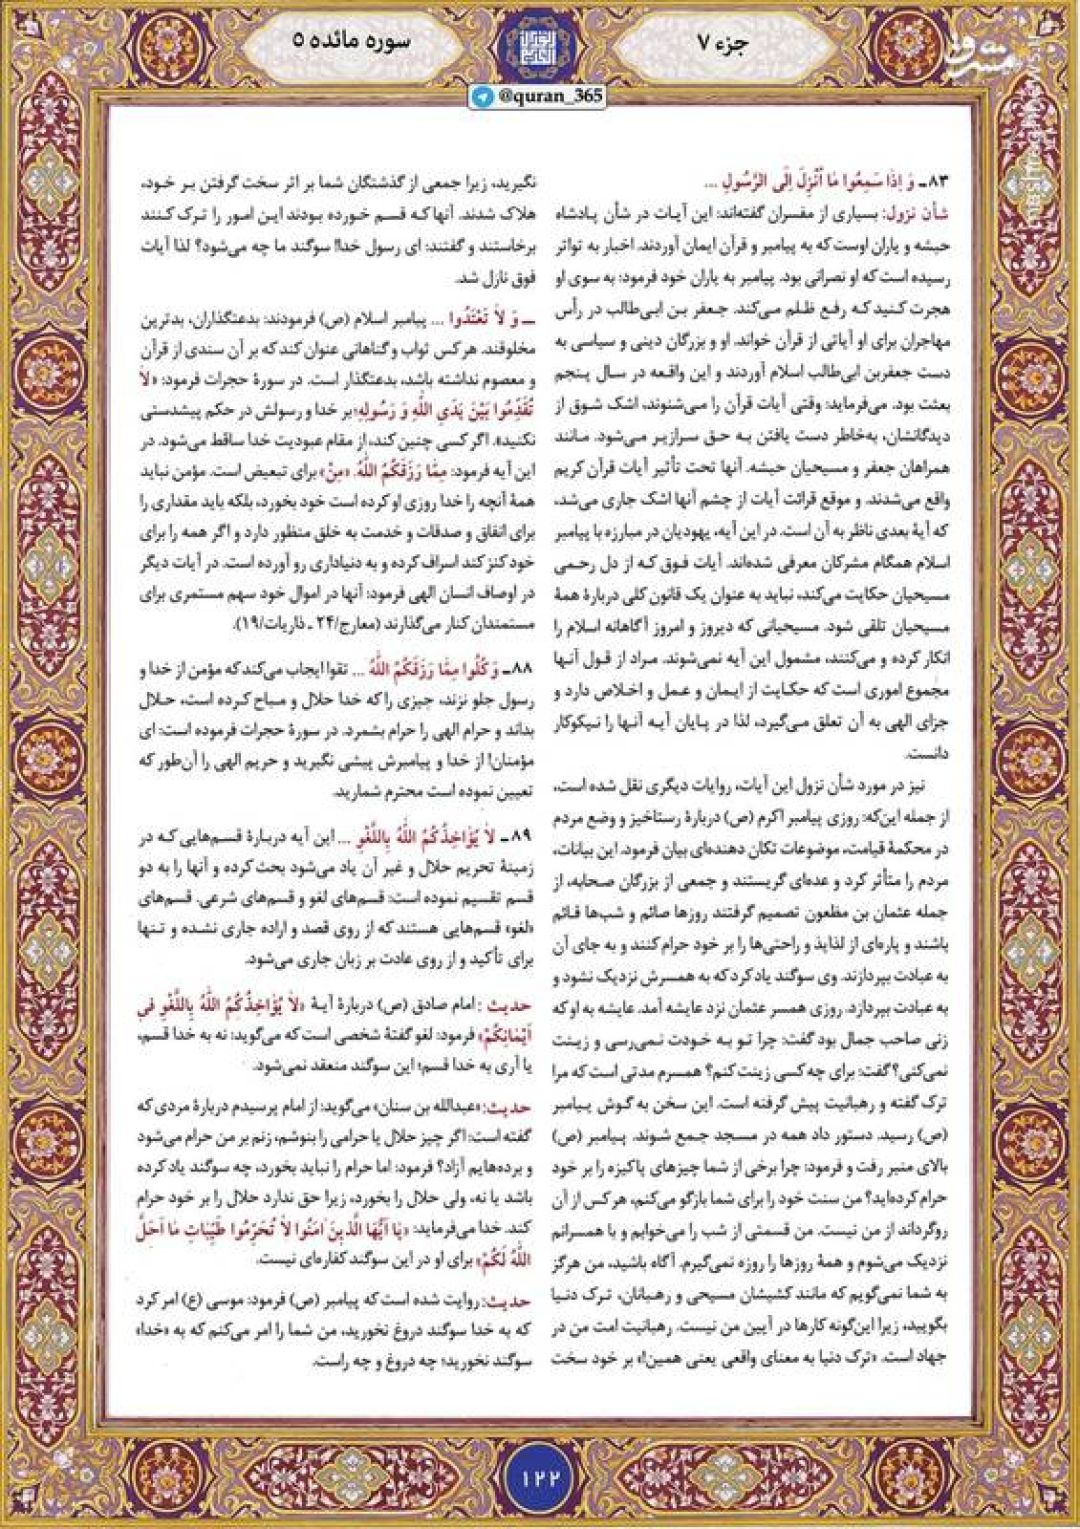 جزء ۷
سوره مائده ۵
@quran_365
۸۳ـ وَ اِذَا سَمِعُوا مَا اُنْزِلَ اِلَی الرَّسُولِ ...
شأن نزول: بسیاری از مفسران گفته‌اند: این آیات در شأن پادشاه
حبشه و یاران اوست که به پیامبر و قرآن ایمان آوردند. اخبار به تواتر
رسیده است که او نصرانی بود. پیامبر به یاران خود فرمود: به سوی او
هجرت کنید که رفع ظلم می‌کند. جعفر بن ابی‌طالب در رأس
مهاجران برای او آیاتی از قرآن خواند. او و بزرگان دینی و سیاسی به
دست جعفربن ابی‌طالب اسلام آوردند و این واقعه در سال پنجم
بعثت بود. می‌فرماید: وقتی آیات قرآن را می‌شنوند، اشک شوق از
دیدگانشان، به‌خاطر دست یافتن به حق سرازیر می‌شود. مانند
همراهان جعفر و مسیحیان حبشه. آنها تحت تأثیر آیات قرآن کریم
واقع می‌شدند. و موقع قرائت آیات از چشم آنها اشک جاری می‌شد،
که آیهٔ بعدی ناظر به آن است. در این آیه، یهودیان در مبارزه با پیامبر
اسلام همگام مشرکان معرفی شده‌اند. آیات فوق که از دل رحمی
مسیحیان حکایت می‌کند، نباید به عنوان یک قانون کلی دربارهٔ همهٔ
مسیحیان تلقی شود. مسیحیانی که دیروز و امروز آگاهانه اسلام را
انکار کرده و می‌کنند، مشمول این آیه نمی‌شوند. مراد از قول آنها
مجموع اموری است که حکایت از ایمان و عمل و اخلاص دارد و
جزای الهی به آن تعلق می‌گیرد، لذا در پایان آیه آنها را نیکوکار
دانست.
نیز در مورد شأن نزول این آیات، روایات دیگری نقل شده است،
از جمله این‌که: روزی پیامبر اکرم (ص) دربارهٔ رستاخیز و وضع مردم
در محکمهٔ قیامت، موضوعات تکان دهنده‌ای بیان فرمود. این بیانات،
مردم را متأثر کرد و عده‌ای گریستند و جمعی از بزرگان صحابه، از
جمله عثمان بن مظعون تصمیم گرفتند روزها صائم و شب‌ها قائم
باشند و پاره‌ای از لذایذ و راحتی‌ها را بر خود حرام کنند و به جای آن
به عبادت بپردازند. وی سوگند یاد کرد که به همسرش نزدیک نشود و
به عبادت بپردازد. روزی همسر عثمان نزد عایشه آمد. عایشه به او که
زنی صاحب جمال بود گفت: چرا تو به خودت نمی‌رسی و زینت
نمی‌کنی؟ گفت: برای چه کسی زینت کنم؟ همسرم مدتی است که مرا
ترک گفته و رهبانیت پیش گرفته است. این سخن به گوش پیامبر
(ص) رسید. دستور داد همه در مسجد جمع شوند. پیامبر (ص)
بالای منبر رفت و فرمود: چرا برخی از شما چیزهای پاکیزه را بر خود
حرام کرده‌اید؟ من سنت خود را برای شما بازگو می‌کنم، هر کس از آن
روگرداند از من نیست. من قسمتی از شب را می‌خوابم و با همسرانم
نزدیک می‌شوم و همهٔ روزها را روزه نمی‌گیرم. آگاه باشید، من هرگز
به شما نمی‌گویم که مانند کشیشان مسیحی و رهبانان، ترک دنیا
بگویید، زیرا این‌گونه کارها در آیین من نیست. رهبانیت امت من در
جهاد است. «ترک دنیا به معنای واقعی یعنی همین!» بر خود سخت
نگیرید، زیرا جمعی از گذشتگان شما بر اثر سخت گرفتن بر خود،
هلاک شدند. آنها که قسم خورده بودند این امور را ترک کنند
برخاستند و گفتند: ای رسول خدا! سوگند ما چه می‌شود؟ لذا آیات
فوق نازل شد.
ـ وَ لاَ تَعْتَدُوا ... پیامبر اسلام (ص) فرمودند: بدعتگذاران، بدترین
مخلوقند. هر کس ثواب و گناهانی عنوان کند که بر آن سندی از قرآن
و معصوم نداشته باشد، بدعتگذار است. در سورهٔ حجرات فرمود: «لاَ
تُقَدِّمُوا بَیْنَ یَدَیِ اللّٰهِ وَ رَسُولِهِ؛ بر خدا و رسولش در حکم پیشدستی
نکنید». اگر کسی چنین کند، از مقام عبودیت خدا ساقط می‌شود. در
این آیه فرمود: مِمَّا رَزَقَکُمُ اللّٰهُ. «مِنْ» برای تبعیض است. مؤمن نباید
همهٔ آنچه را خدا روزی او کرده است خود بخورد، بلکه باید مقداری را
برای انفاق و صدقات و خدمت به خلق منظور دارد و اگر همه را برای
خود کنز کند اسراف کرده و به دنیاداری رو آورده است. در آیات دیگر
در اوصاف انسان الهی فرمود: آنها در اموال خود سهم مستمری برای
مستمندان کنار می‌گذارند (معارج/۲۴ ـ ذاریات/۱۹).
۸۸ـ وَ کُلُوا مِمَّا رَزَقَکُمُ اللّٰهُ ... تقوا ایجاب می‌کند که مؤمن از خدا و
رسول جلو نزند، چیزی را که خدا حلال و مباح کرده است، حلال
بداند و حرام الهی را حرام بشمرد. در سورهٔ حجرات فرموده است: ای
مؤمنان! از خدا و پیامبرش پیشی نگیرید و حریم الهی را آن‌طور که
تعیین نموده است محترم شمارید.
۸۹ـ لاَ یُؤَاخِذُکُمُ اللّٰهُ بِاللَّغْوِ ... این آیه دربارهٔ قسم‌هایی که در
زمینهٔ تحریم حلال و غیر آن یاد می‌شود بحث کرده و آنها را به دو
قسم تقسیم نموده است: قسم‌های لغو و قسم‌های شرعی. قسم‌های
«لغو» قسم‌هایی هستند که از روی قصد و اراده جاری نشده و تنها
برای تأکید و از روی عادت بر زبان جاری می‌شود.
حدیث: امام صادق (ص) دربارهٔ آیهٔ «لاَ یُؤَاخِذُکُمُ اللّٰهُ بِاللَّغْوِ فِی
اَیْمَانِکُمْ» فرمود: لغو گفتهٔ شخصی است که می‌گوید: نه به خدا قسم،
یا آری به خدا قسم؛ این سوگند منعقد نمی‌شود.
حدیث: «عبدالله بن سنان» می‌گوید: از امام پرسیدم دربارهٔ مردی که
گفته است: اگر چیز حلال یا حرامی را بنوشم، زنم بر من حرام می‌شود
و برده‌هایم آزاد؟ فرمود: اما حرام را نباید بخورد، چه سوگند یاد کرده
باشد یا نه، ولی حلال را بخورد، زیرا حق ندارد حلال را بر خود حرام
کند. خدا می‌فرماید: «یَا اَیُّهَا الَّذِینَ اٰمَنُوا لاَ تُحَرِّمُوا طَیِّبَاتِ مَا اَحَلَّ
اللّٰهُ لَکُمْ» برای او در این سوگند کفاره‌ای نیست.
حدیث: روایت شده است که پیامبر (ص) فرمود: موسی (ع) امر کرد
که به خدا سوگند دروغ نخورید، من شما را امر می‌کنم که به «خدا»
سوگند نخورید؛ چه دروغ و چه راست.
۱۲۲